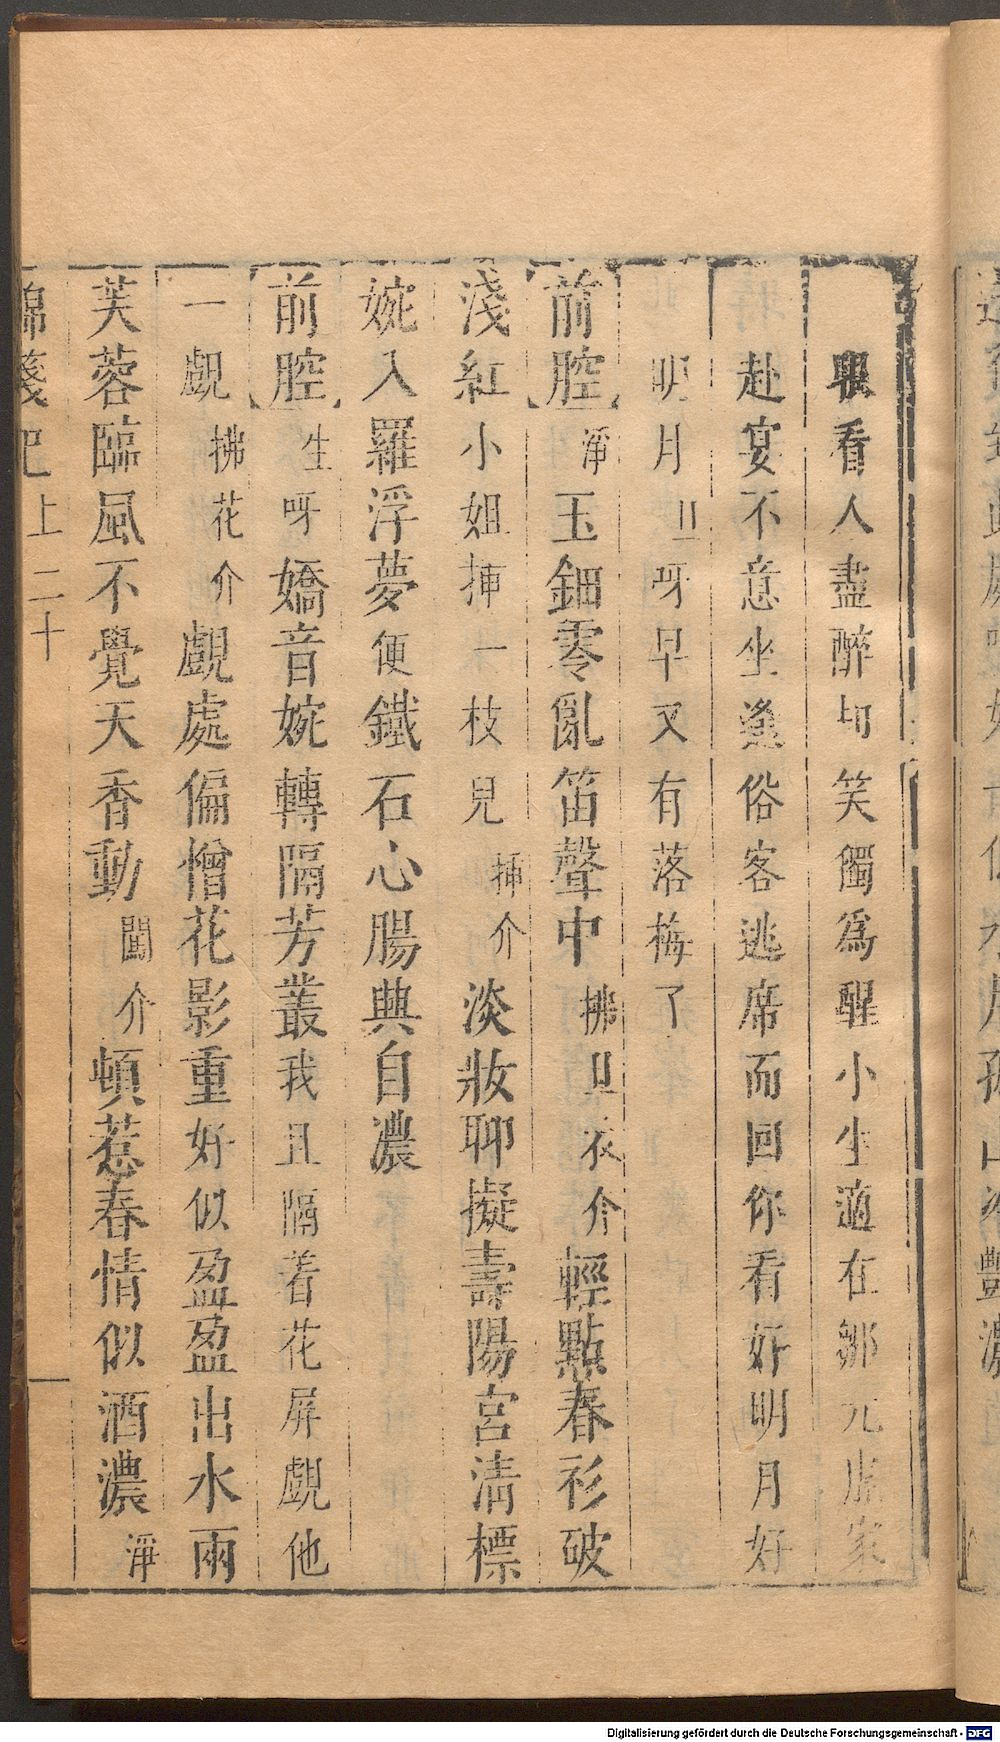 眼看人盡醉却笑獨爲醒小生適在鄒元虛家
赴宴不意坐逢俗客逃席而回你看好明月好
明月丑呀早又有落梅了
前腔淨玉鈿零亂笛聲中拂丑衣介輕點春衫破
淺紅小姐揷一枝兒揷介淡妝聊擬壽陽宮清標
婉入羅浮夢便鐵石心腸典自濃
前腔生呀嬌音婉轉隔芳叢我且隔着花屏覷他
一覷拂花介覷處偏憎花影重好似盈盈出水兩
芙蓉臨風不覺天香動聞介頓惹春情似酒濃淨
錦箋記上二十
Digitalisierung gefördert durch die Deutsche Forschungsgemeinschaft - DFG